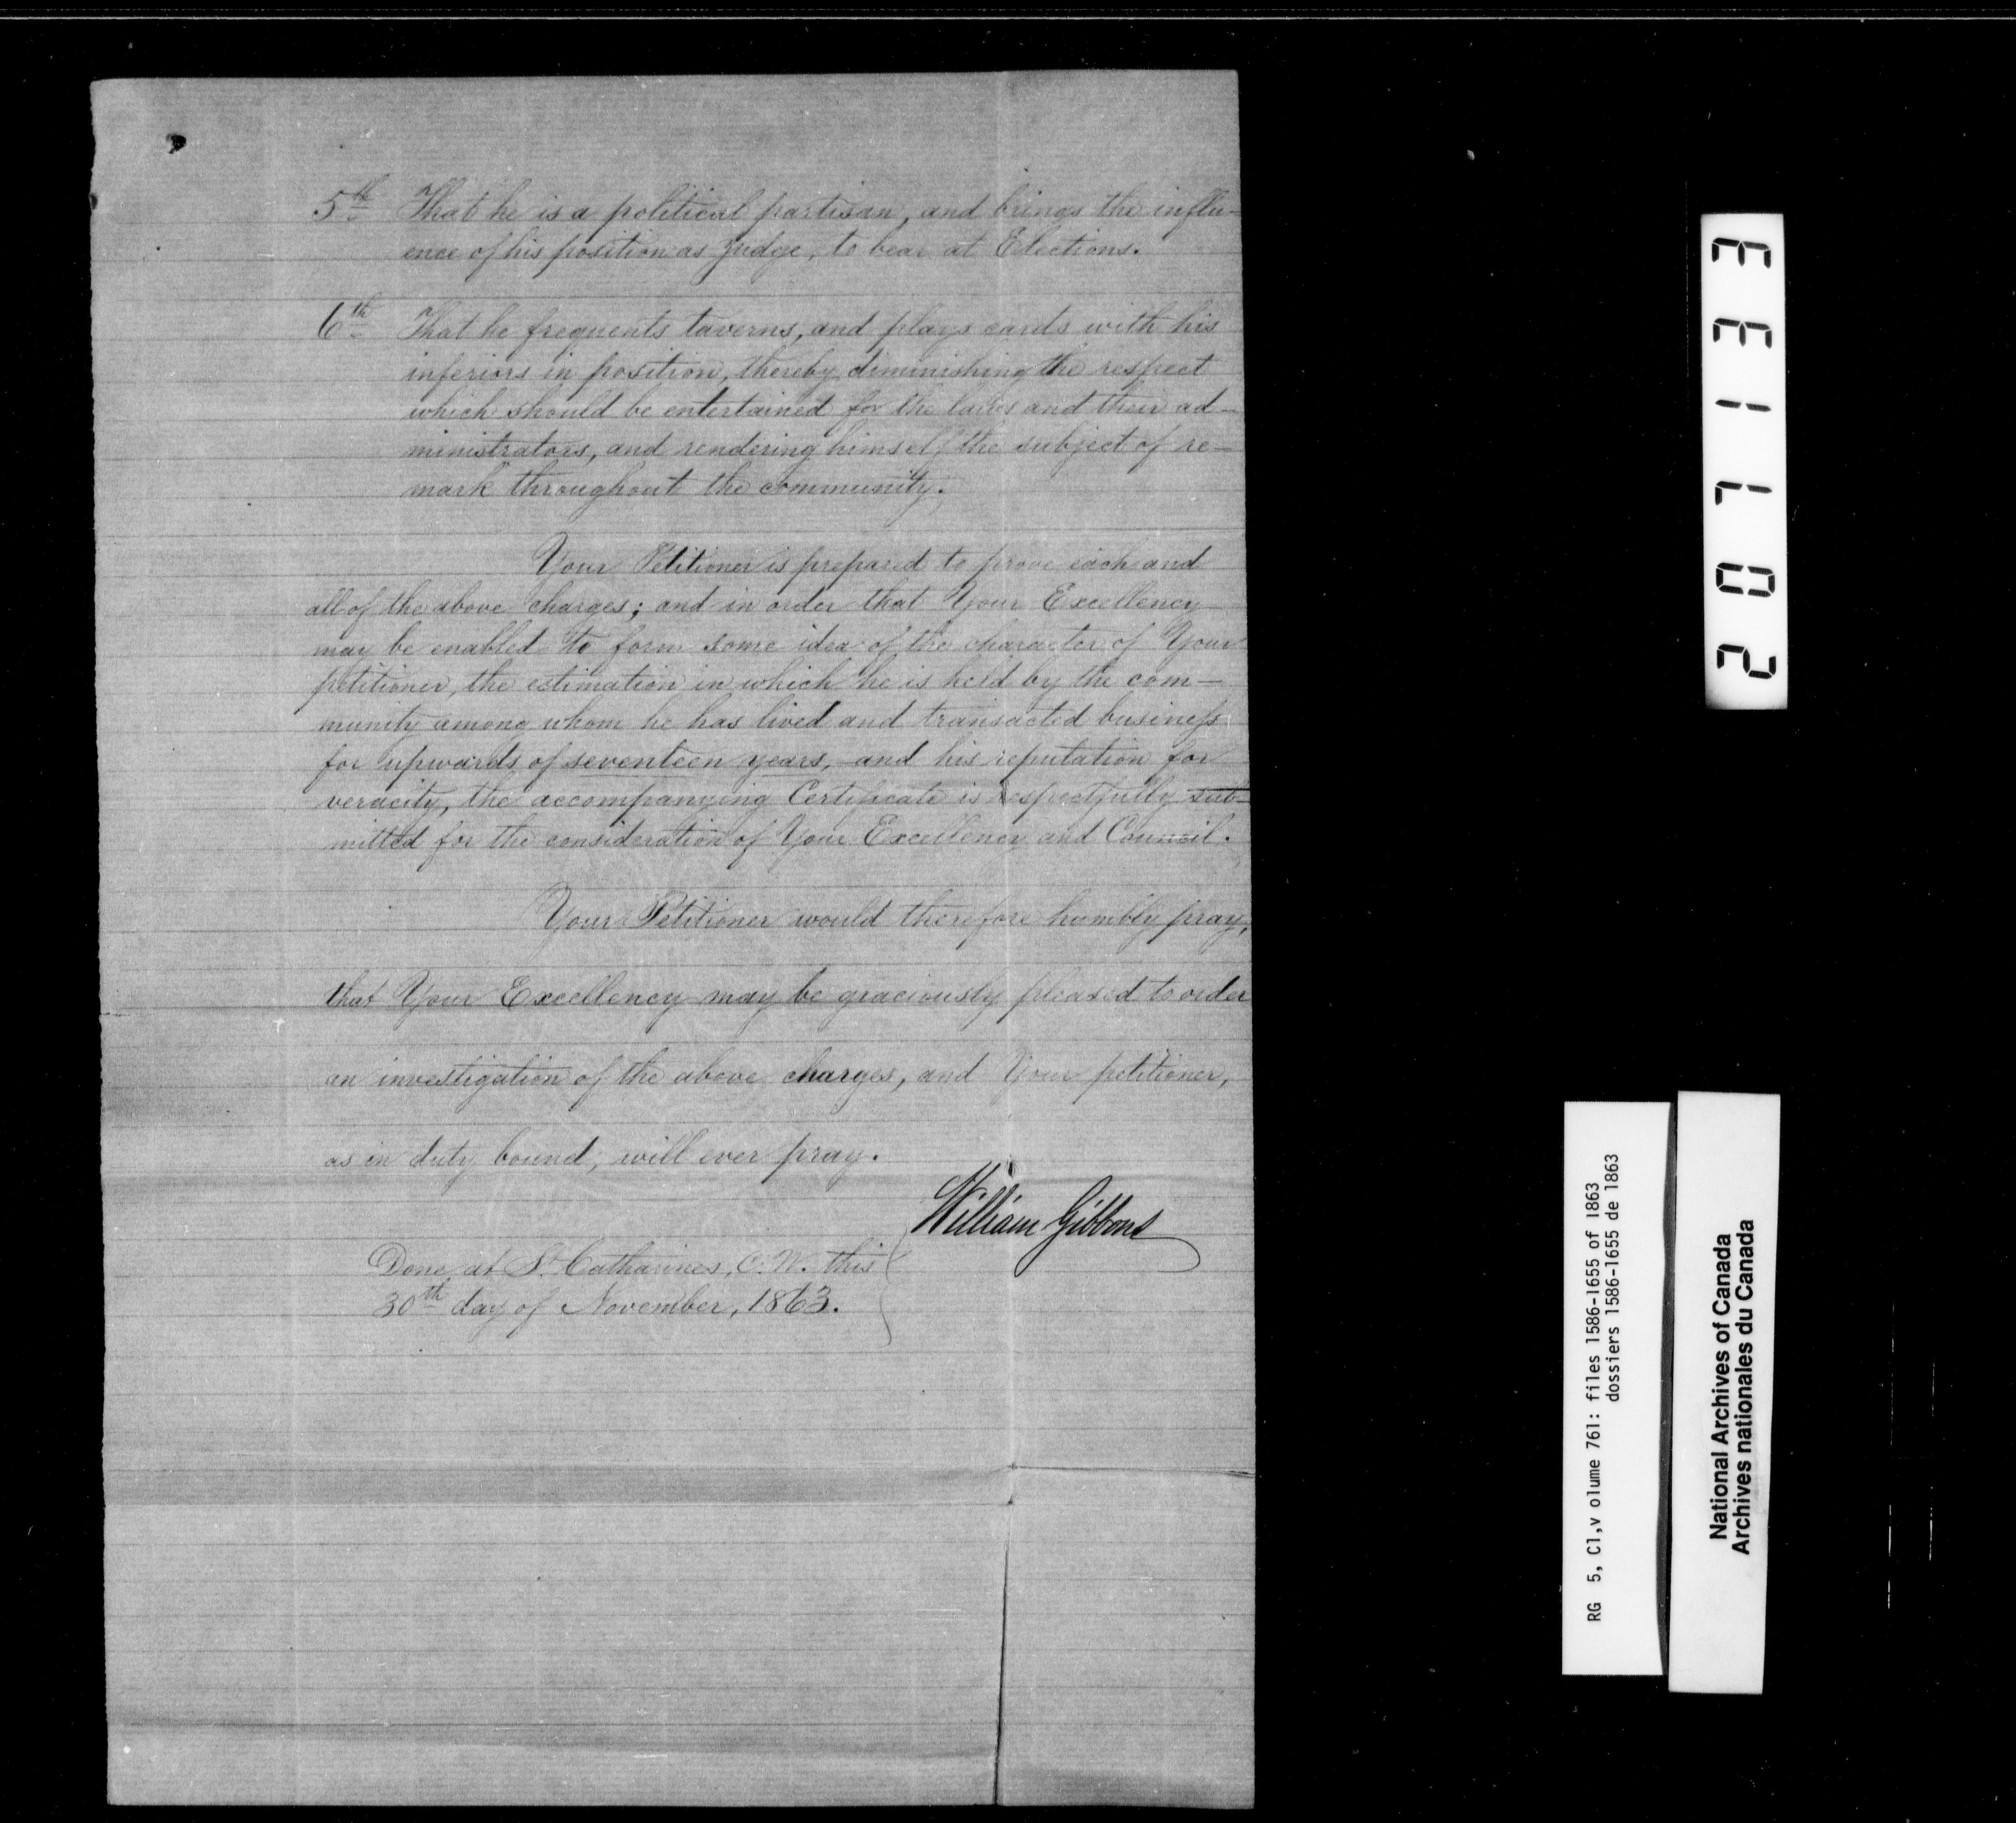 5th That he is a political partisan, and brings the influ-
ence of his position as Judge, to bear at Elections.
6th That he frequents taverns, and plays cards with his
inferiors in position, thereby diminishing the respect
which should be entertained for the laws and their ad-
ministrators, and rendering himself the subject of re-
mark throughout the community.
Your Petitioner is prepared to prove each and
all of the above charges; and in order that Your Excellency
may be enabled to form some idea of the character of Your
petitioner, the estimation in which he is held by the com-
munity among whom he has lived and transacted business
for upwards of seventeen years, and his reputation for
veracity, the accompanying Certificate is respectfully sub-
mitted for the consideration of Your Excellency and Council.
Your Petitioner would therefore humbly pray,
that Your Excellency may be graciously pleased to order
an investigation of the above charges, and Your petitioner,
as in duty bound, will ever pray.
William Gibbons
Done at St. Catharines, C.W. this
30th day of November, 1863.
207133
RG 5, C1,v olume 761: files 1586-1655 of 1863
dossiers 1586-1655 de 1863
National Archives of Canada
Archives nationales du Canada